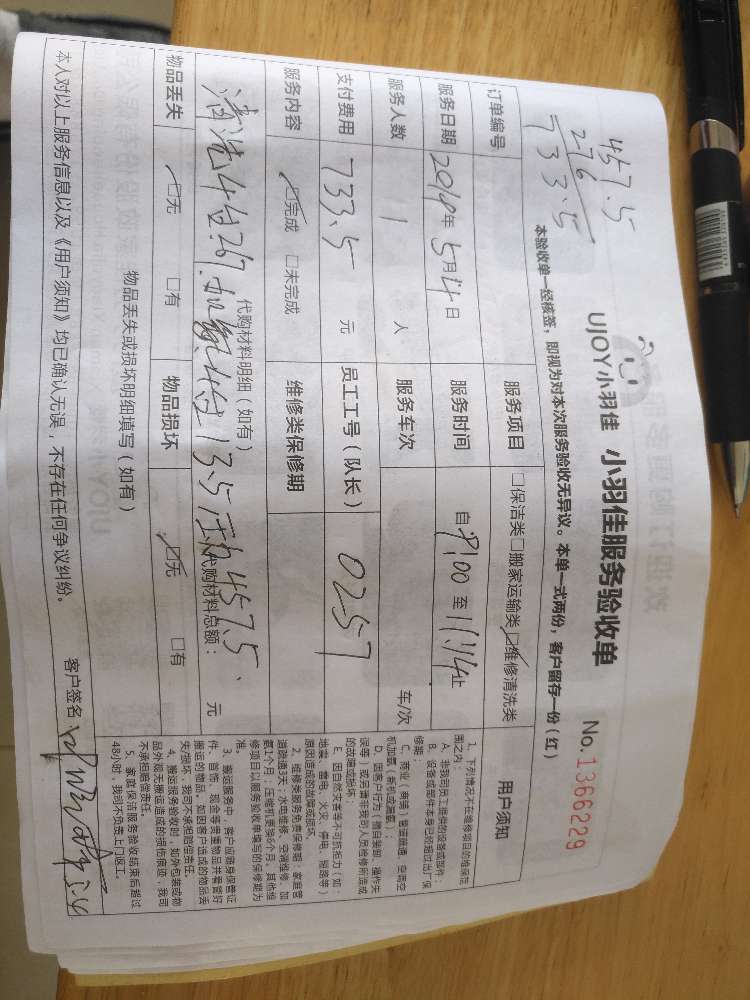 457.5
276
733.5
UJOY小羽佳 小羽佳服务验收单 No.1366229
本验收单一经核签，即视为对本次服务验收无异议。本单一式两份，客户留存一份（红）
订单编号 服务项目 □保洁类□搬家运输类☑维修清洗类
服务日期 2019年5月14日 服务时间 自9:00至11:14止
服务人数 1 人 服务车次 车/次
支付费用 733.5 元 员工工号（队长） 0257
服务内容 ☑完成 □未完成 维修类保修期
代购材料明细（如有）
清洗4台267.加氟.4台13.5压力457.5.
代购材料总额： 元
物品丢失 ☑无 □有 物品损坏 ☑无 □有
物品丢失或损坏明细填写（如有）
本人对以上服务信息以及《用户须知》均已确认无误，不存在任何争议纠纷。 客户签名
用户须知
1、下列情况不在维修项目的维保范围之内：
A、非我司员工提供的设备或部件；
B、设备或部件本身已经超过出厂保修期；
C、商业（商铺）管道疏通、空调空机加氨（新机或漏氨）；
D、因客户行为（擅自装卸、操作失误等）或另请非我司人员维修所造成的故障或损坏；
E、因自然灾害等不可抗拒力（如：地震、雷电、火灾、停电、短路等）原因造成的故障或损坏。
2、维修类服务免费保修期：家庭管道疏通3天；水电维修、空调维修、加氨1个月，压缩机更换6个月，其他维修项目以服务验收单填写的保修期为准。
3、搬运服务中，客户应随身保管证件、首饰、现金等贵重物品并看管好搬运的物品。如因客户造成的物品丢失/损坏，我司不承担赔偿责任。
4、搬运服务验收时，如外包装或物品外观无搬运造成的损伤痕迹，我司不承担赔偿责任。
5、家庭保洁服务验收结束后超过48小时，我司不负责上门返工。